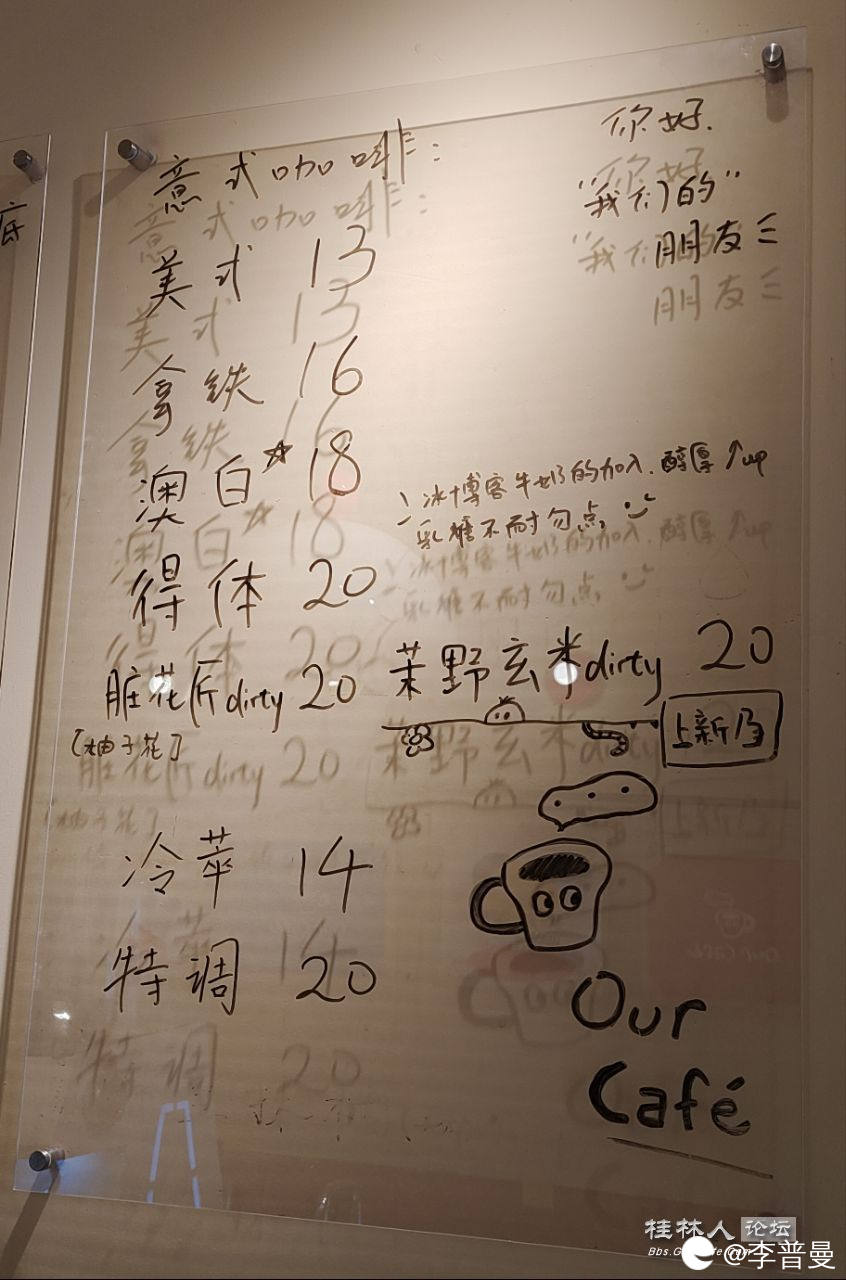 你好.
"我们的"
朋友
意式咖啡:
美式 13
拿铁 16
澳白☆ 18
冰博客牛奶的加入.醇厚↑up
乳糖不耐勿点
得体 20
脏花匠dirty 20
[柚子花]
茉野玄米dirty 20
上新
冷萃 14
特调 20
Our
Café
底
桂林人论坛
@李普曼